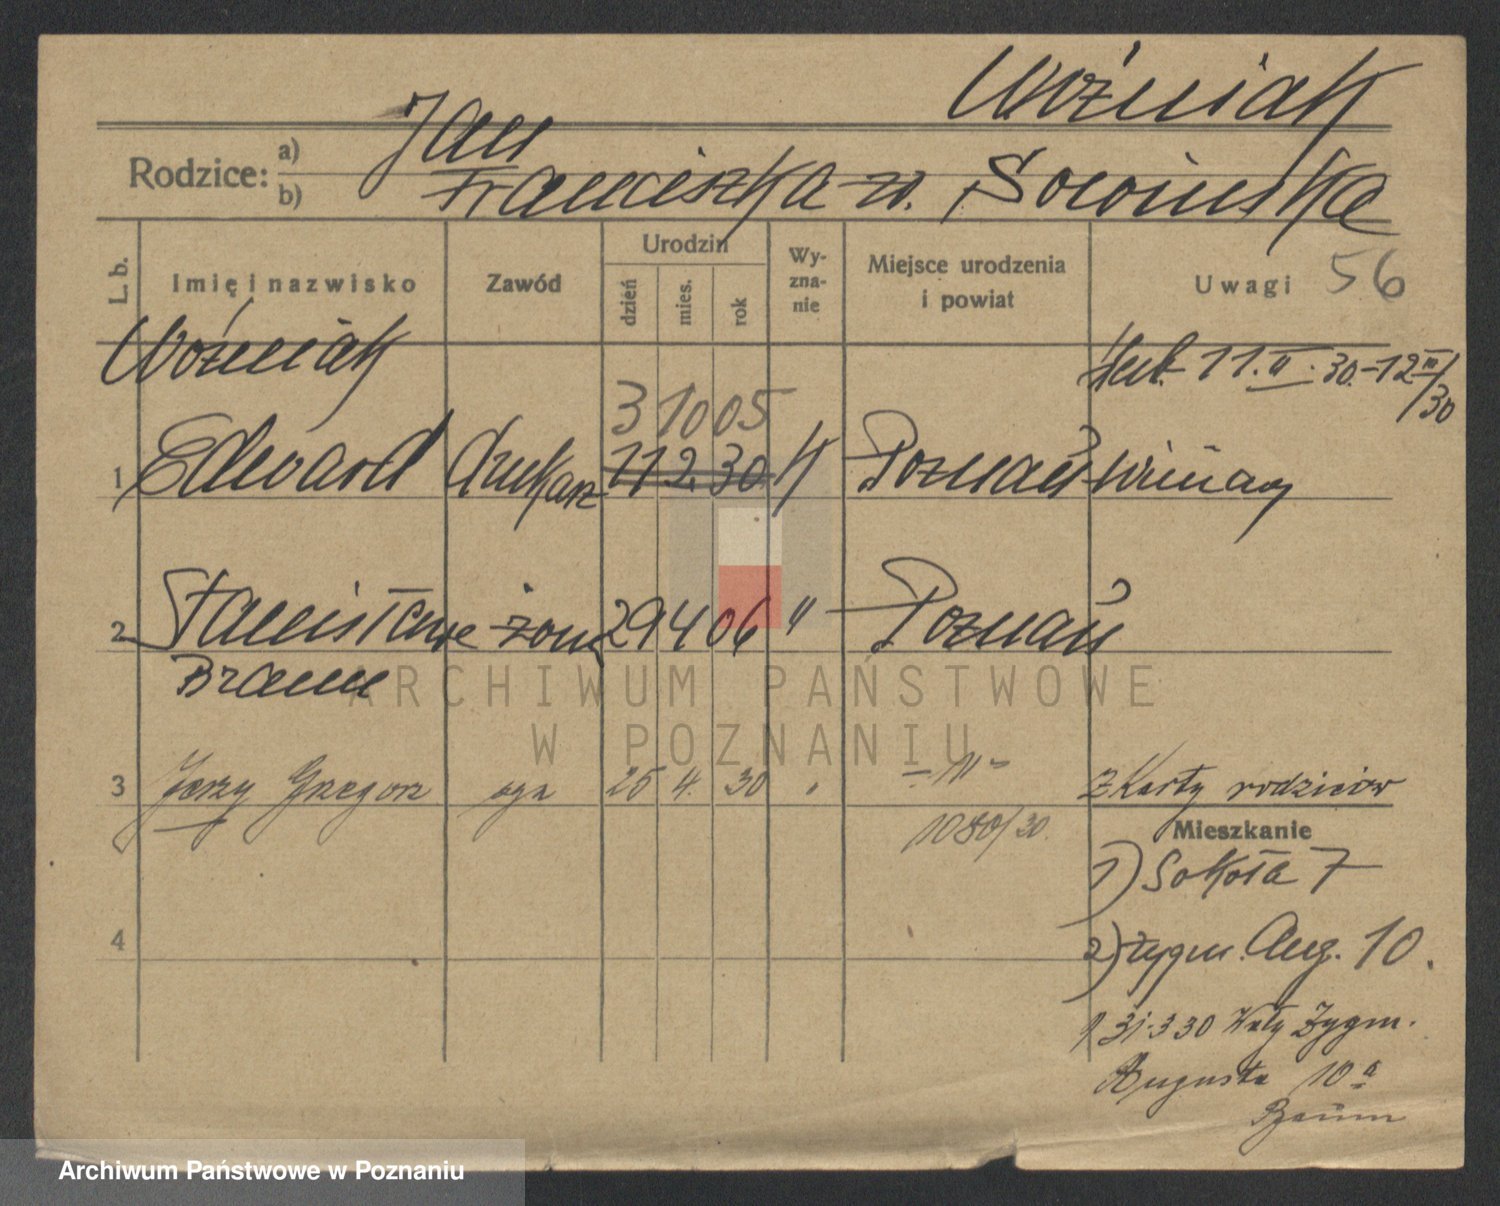 Woźniak
Rodzice: a) Jan
b) Franciszka z d. Sowińska
L. b. Imię i nazwisko Zawód Urodzin dzień mies. rok Wy-zna-nie Miejsce urodzenia i powiat Uwagi 56
Woźniak 11. II. 30. - 12 III/30
3 10 05
1 Edward drukarz 11 2 30 K Poznań Winiary
2 Stanisława żona 29 4 06 " Poznań
Braun
ARCHIWUM PAŃSTWOWE
W POZNANIU
3 Jerzy Grzegorz 25 4. 30 " - " - z Karty rodziców
1080/30
Mieszkanie
1) Sokoła 7
4
2) Zygm. Aug. 10.
31.3 30 Wały Zygm.
Augusta 10 a
Archiwum Państwowe w Poznaniu